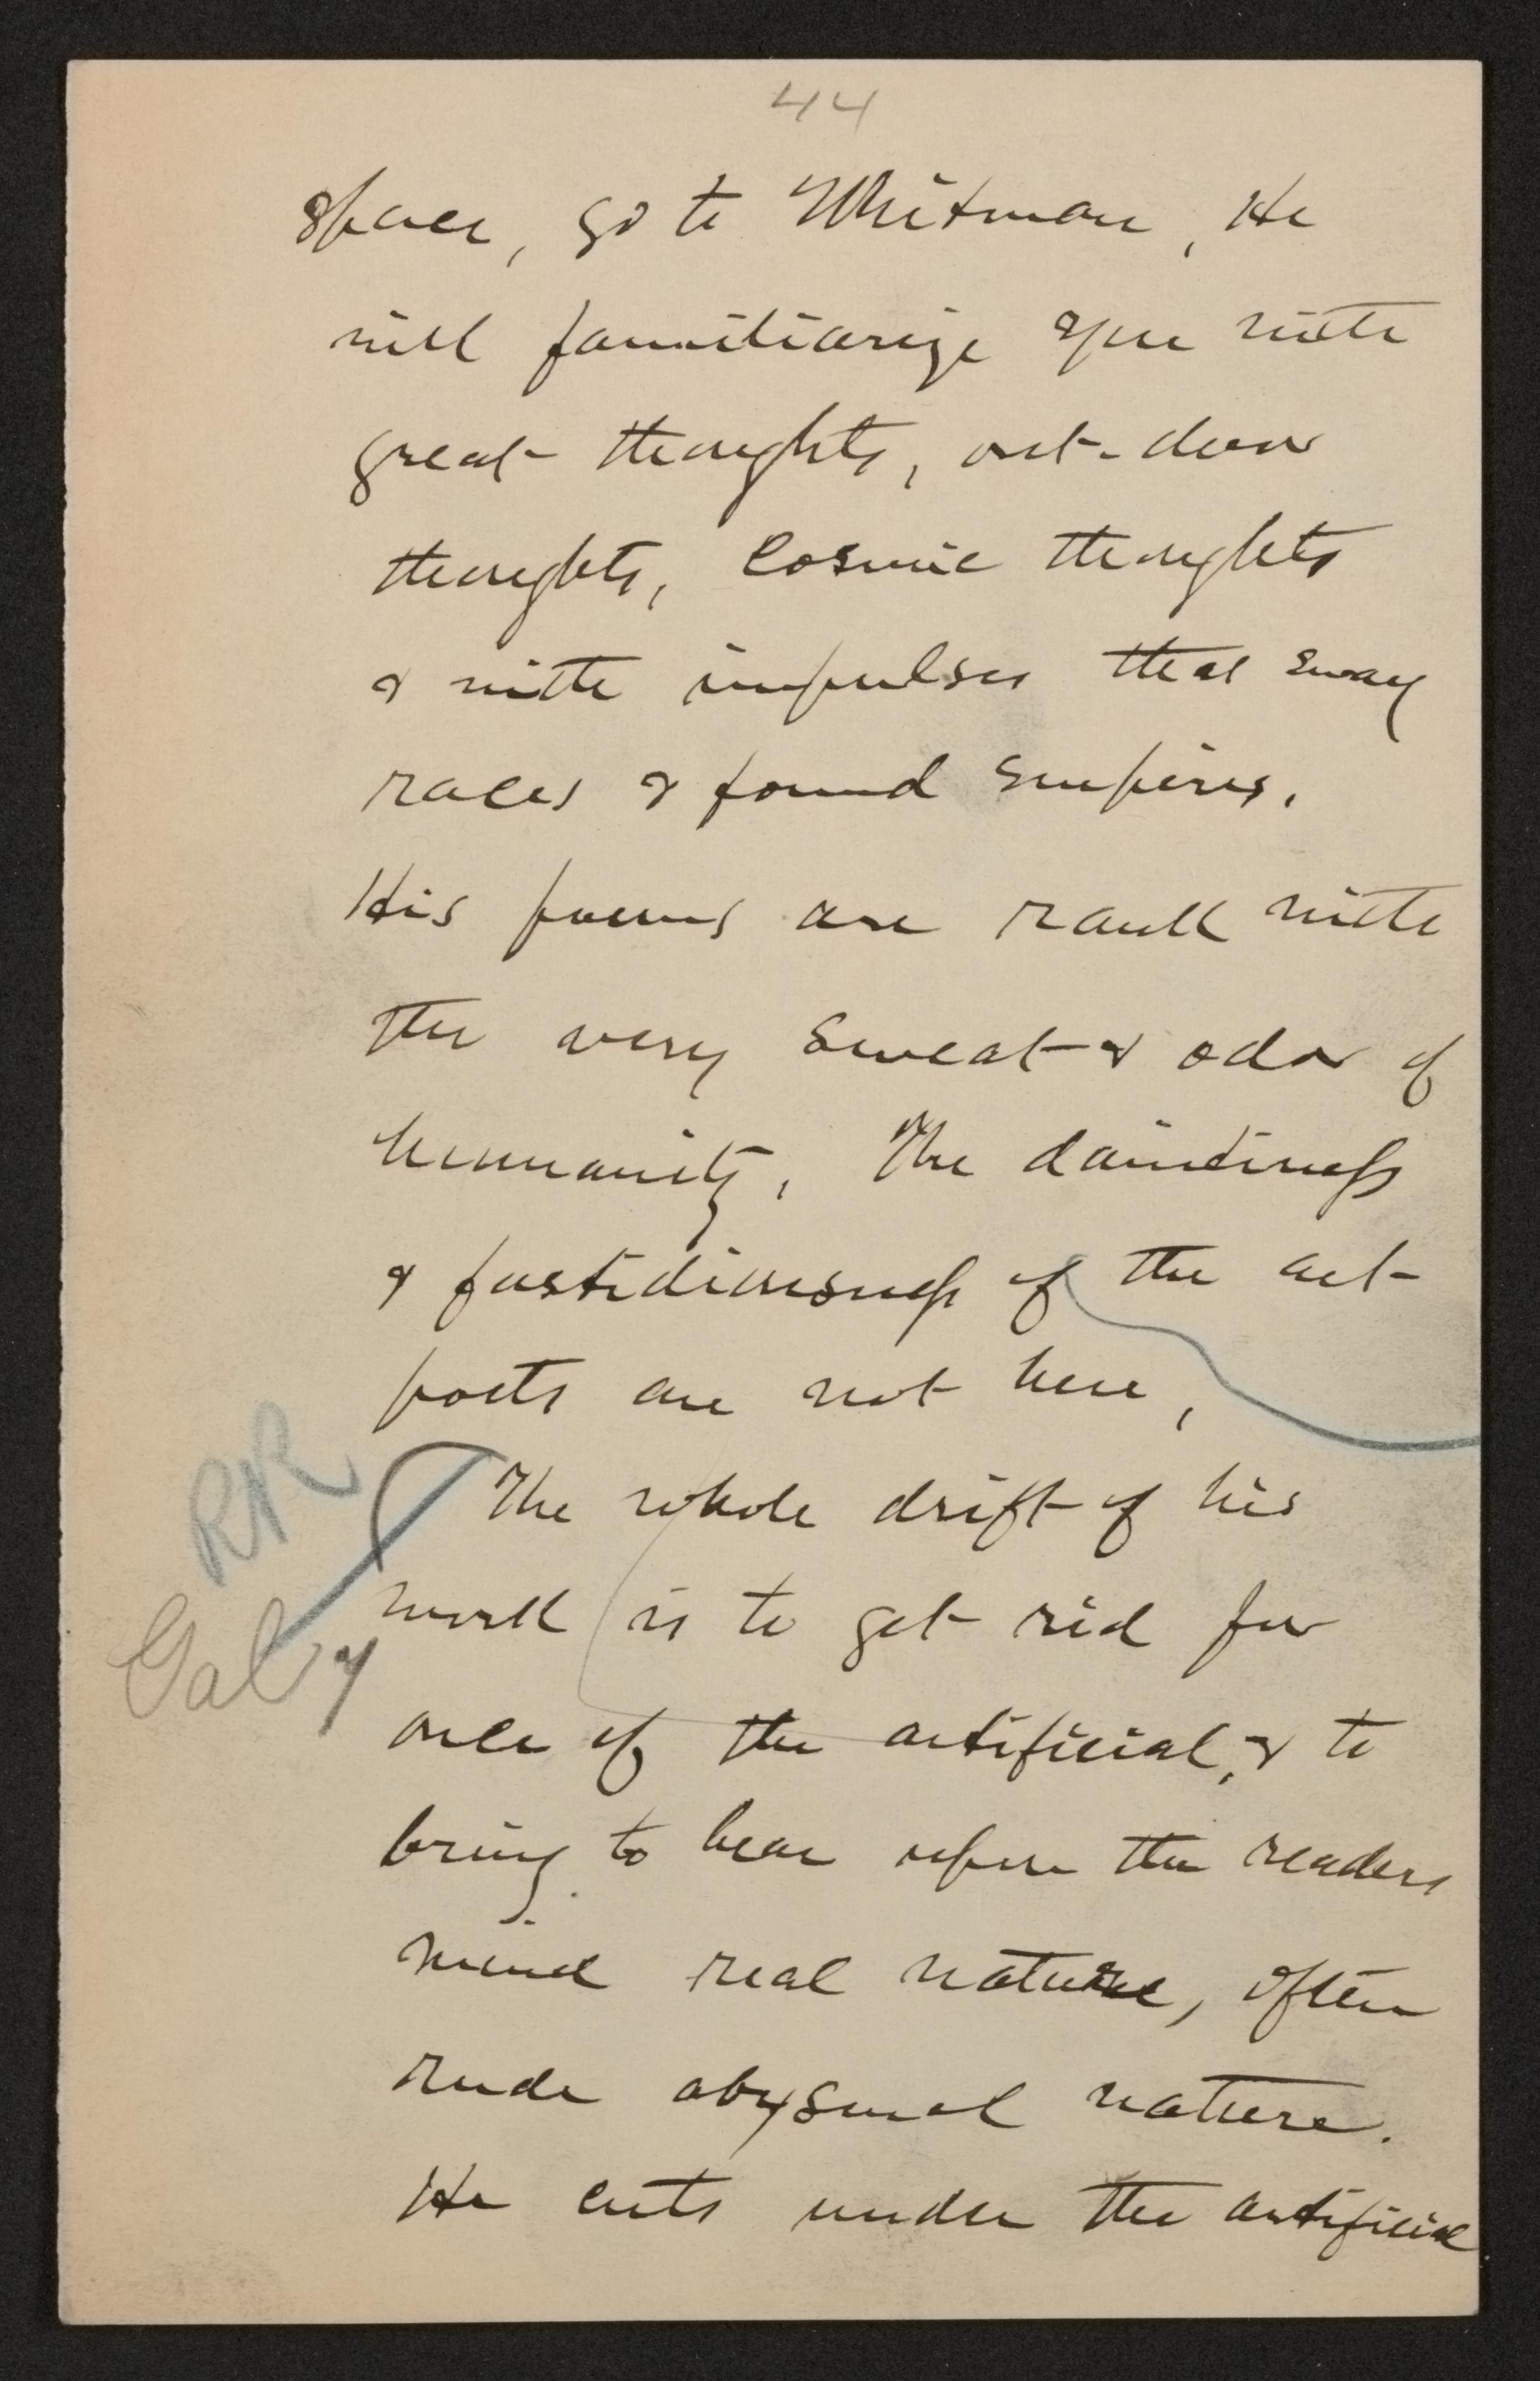 44
space, go to Whitman, He
will familiarize you with
great thoughts, out-door
thoughts, Cosmic thoughts
& with impulses that sway
races & found empires.
His poems are rank with
the very sweat & odor of
humanity. The daintiness
& fastidiousness of the art-
poets are not here,
The whole drift of his
RR
work is to get rid for
Gal 7
once of the artificial, & to
bring to bear upon the readers
mind real nature, often
rude abysmal nature.
He cuts under the artificial